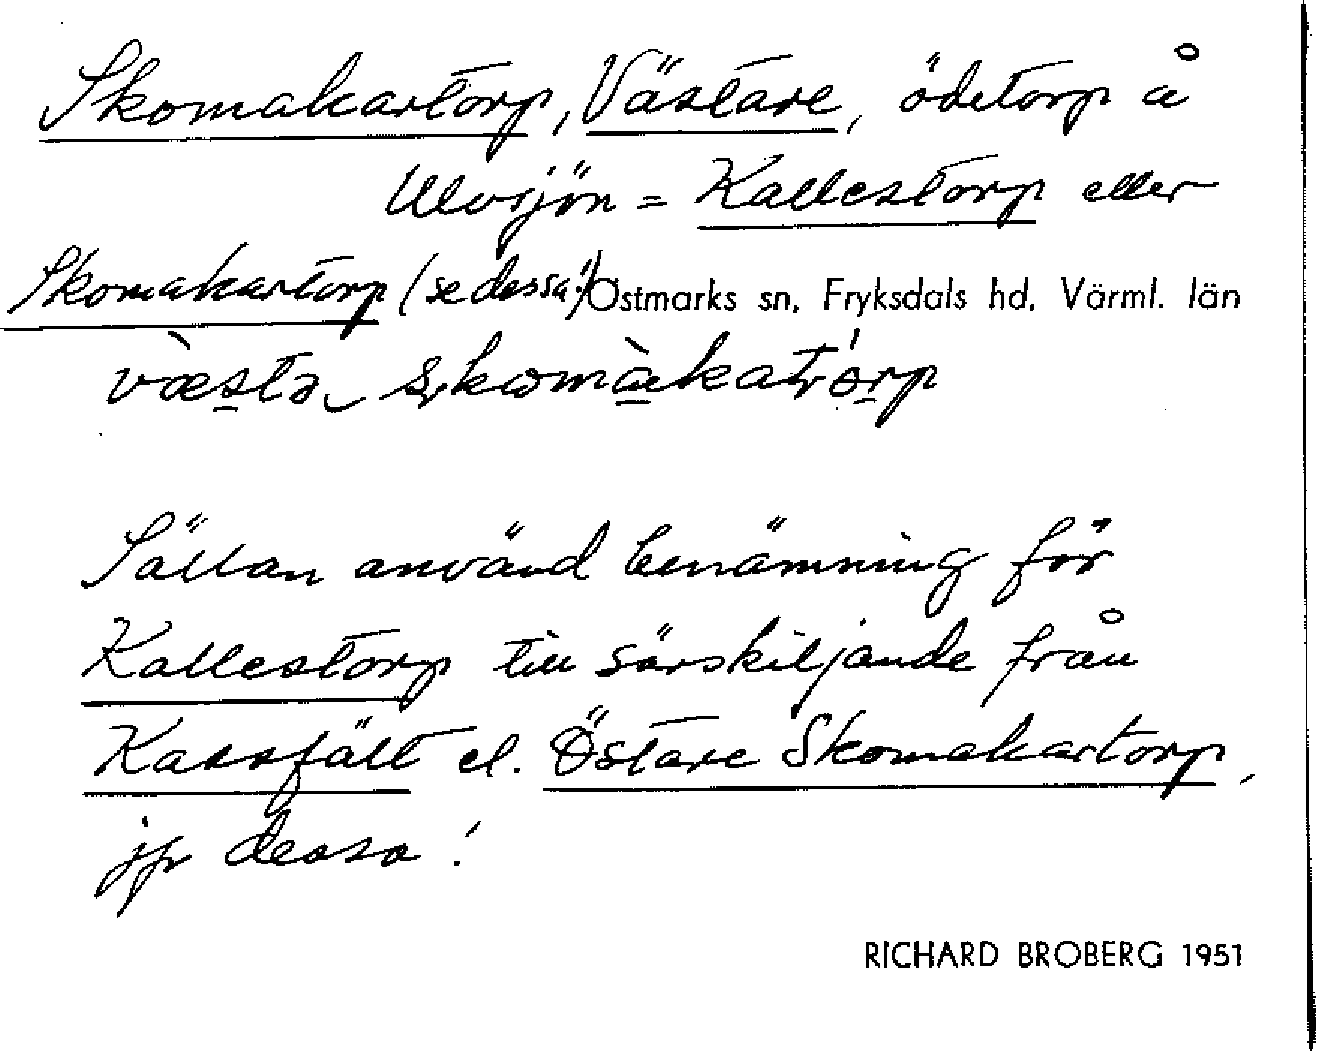 Skomakartorp, Västare, ödetorp å
Ulvsjön = Kallestorp eller
Skomakartorp (se dessa!) Östmarks sn, Fryksdals hd, Värml. län
væsta skomàkatrórp
Sällan använd benämning för
Kallestorp till särskiljande från
Kassfält el. Östare Skomakartorp,
jfr dessa!
RICHARD BROBERG 1951